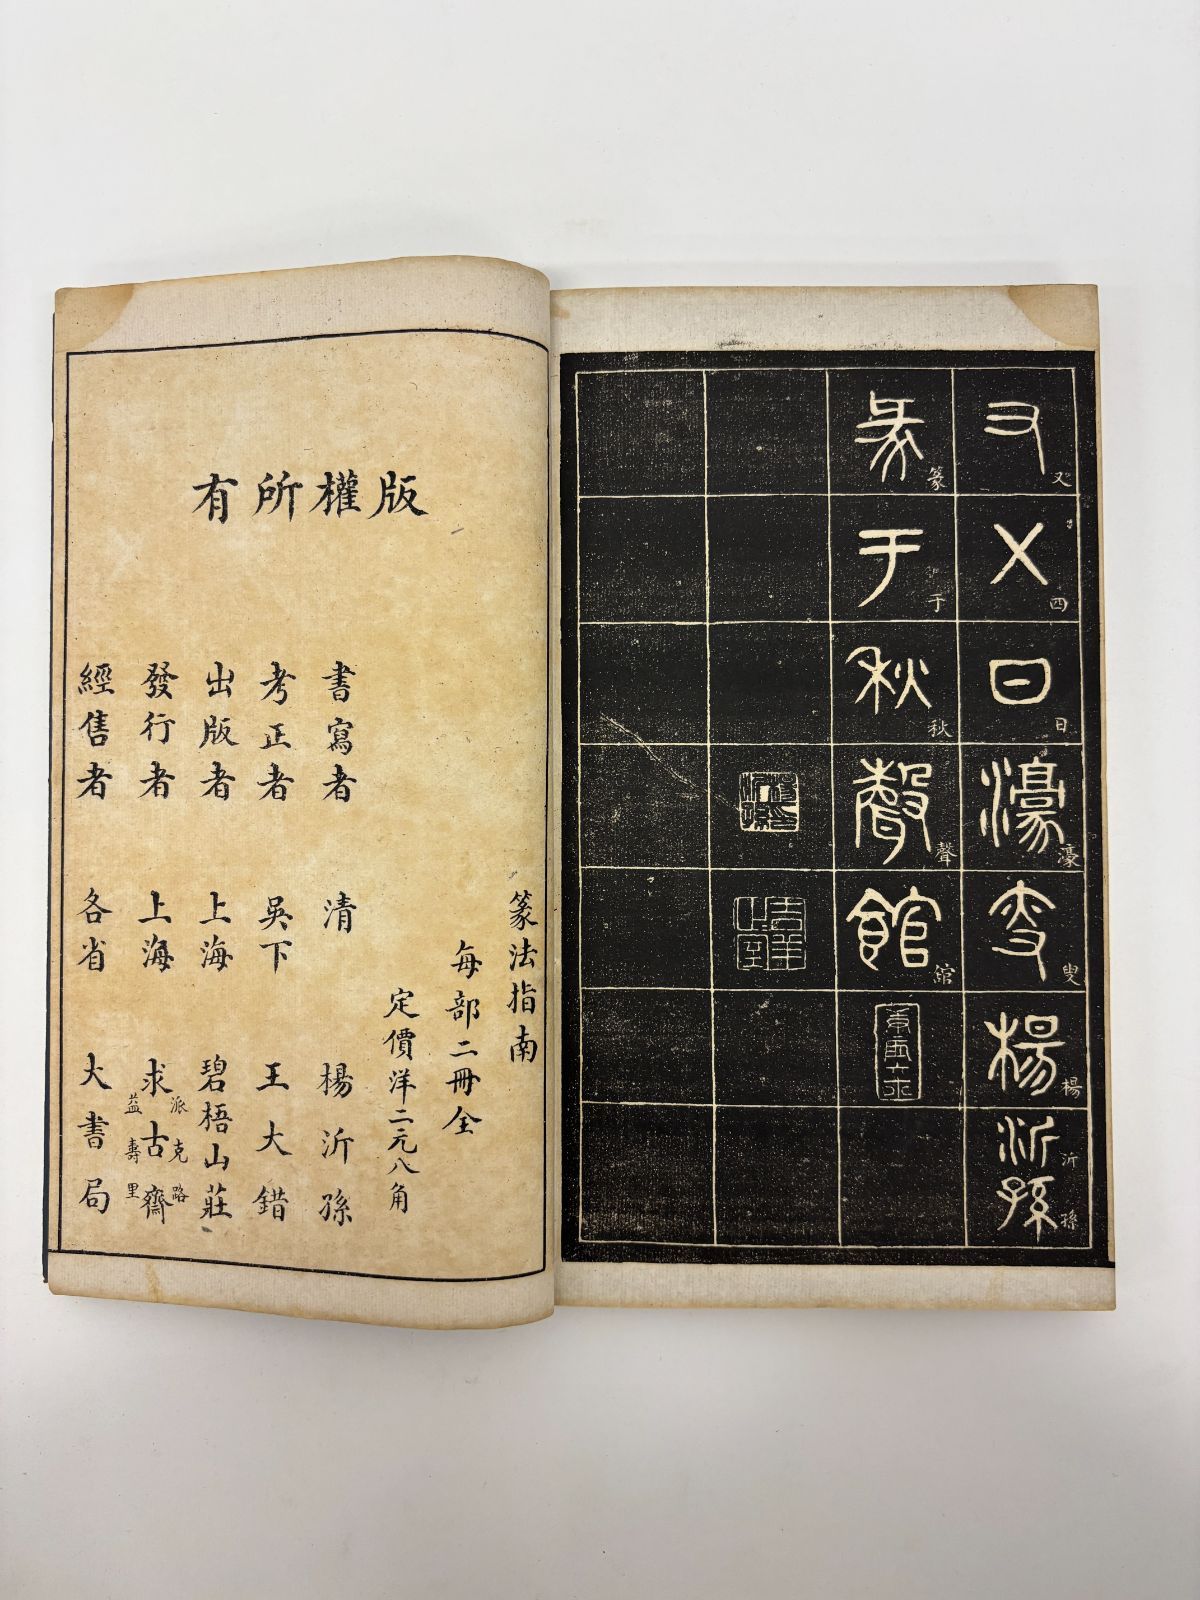 又㐅日濠叟楊沂孫
又四日濠叟楊沂孫
篆于秋聲館
篆于秋聲館
楊沂孫印
版權所有
篆法指南
每部二冊全
定價洋二元八角
書寫者 清 楊沂孫
考正者 吳下 王大錯
出版者 上海 碧梧山莊
發行者 上海 派克路益壽里 求古齋
經售者 各省 大書局